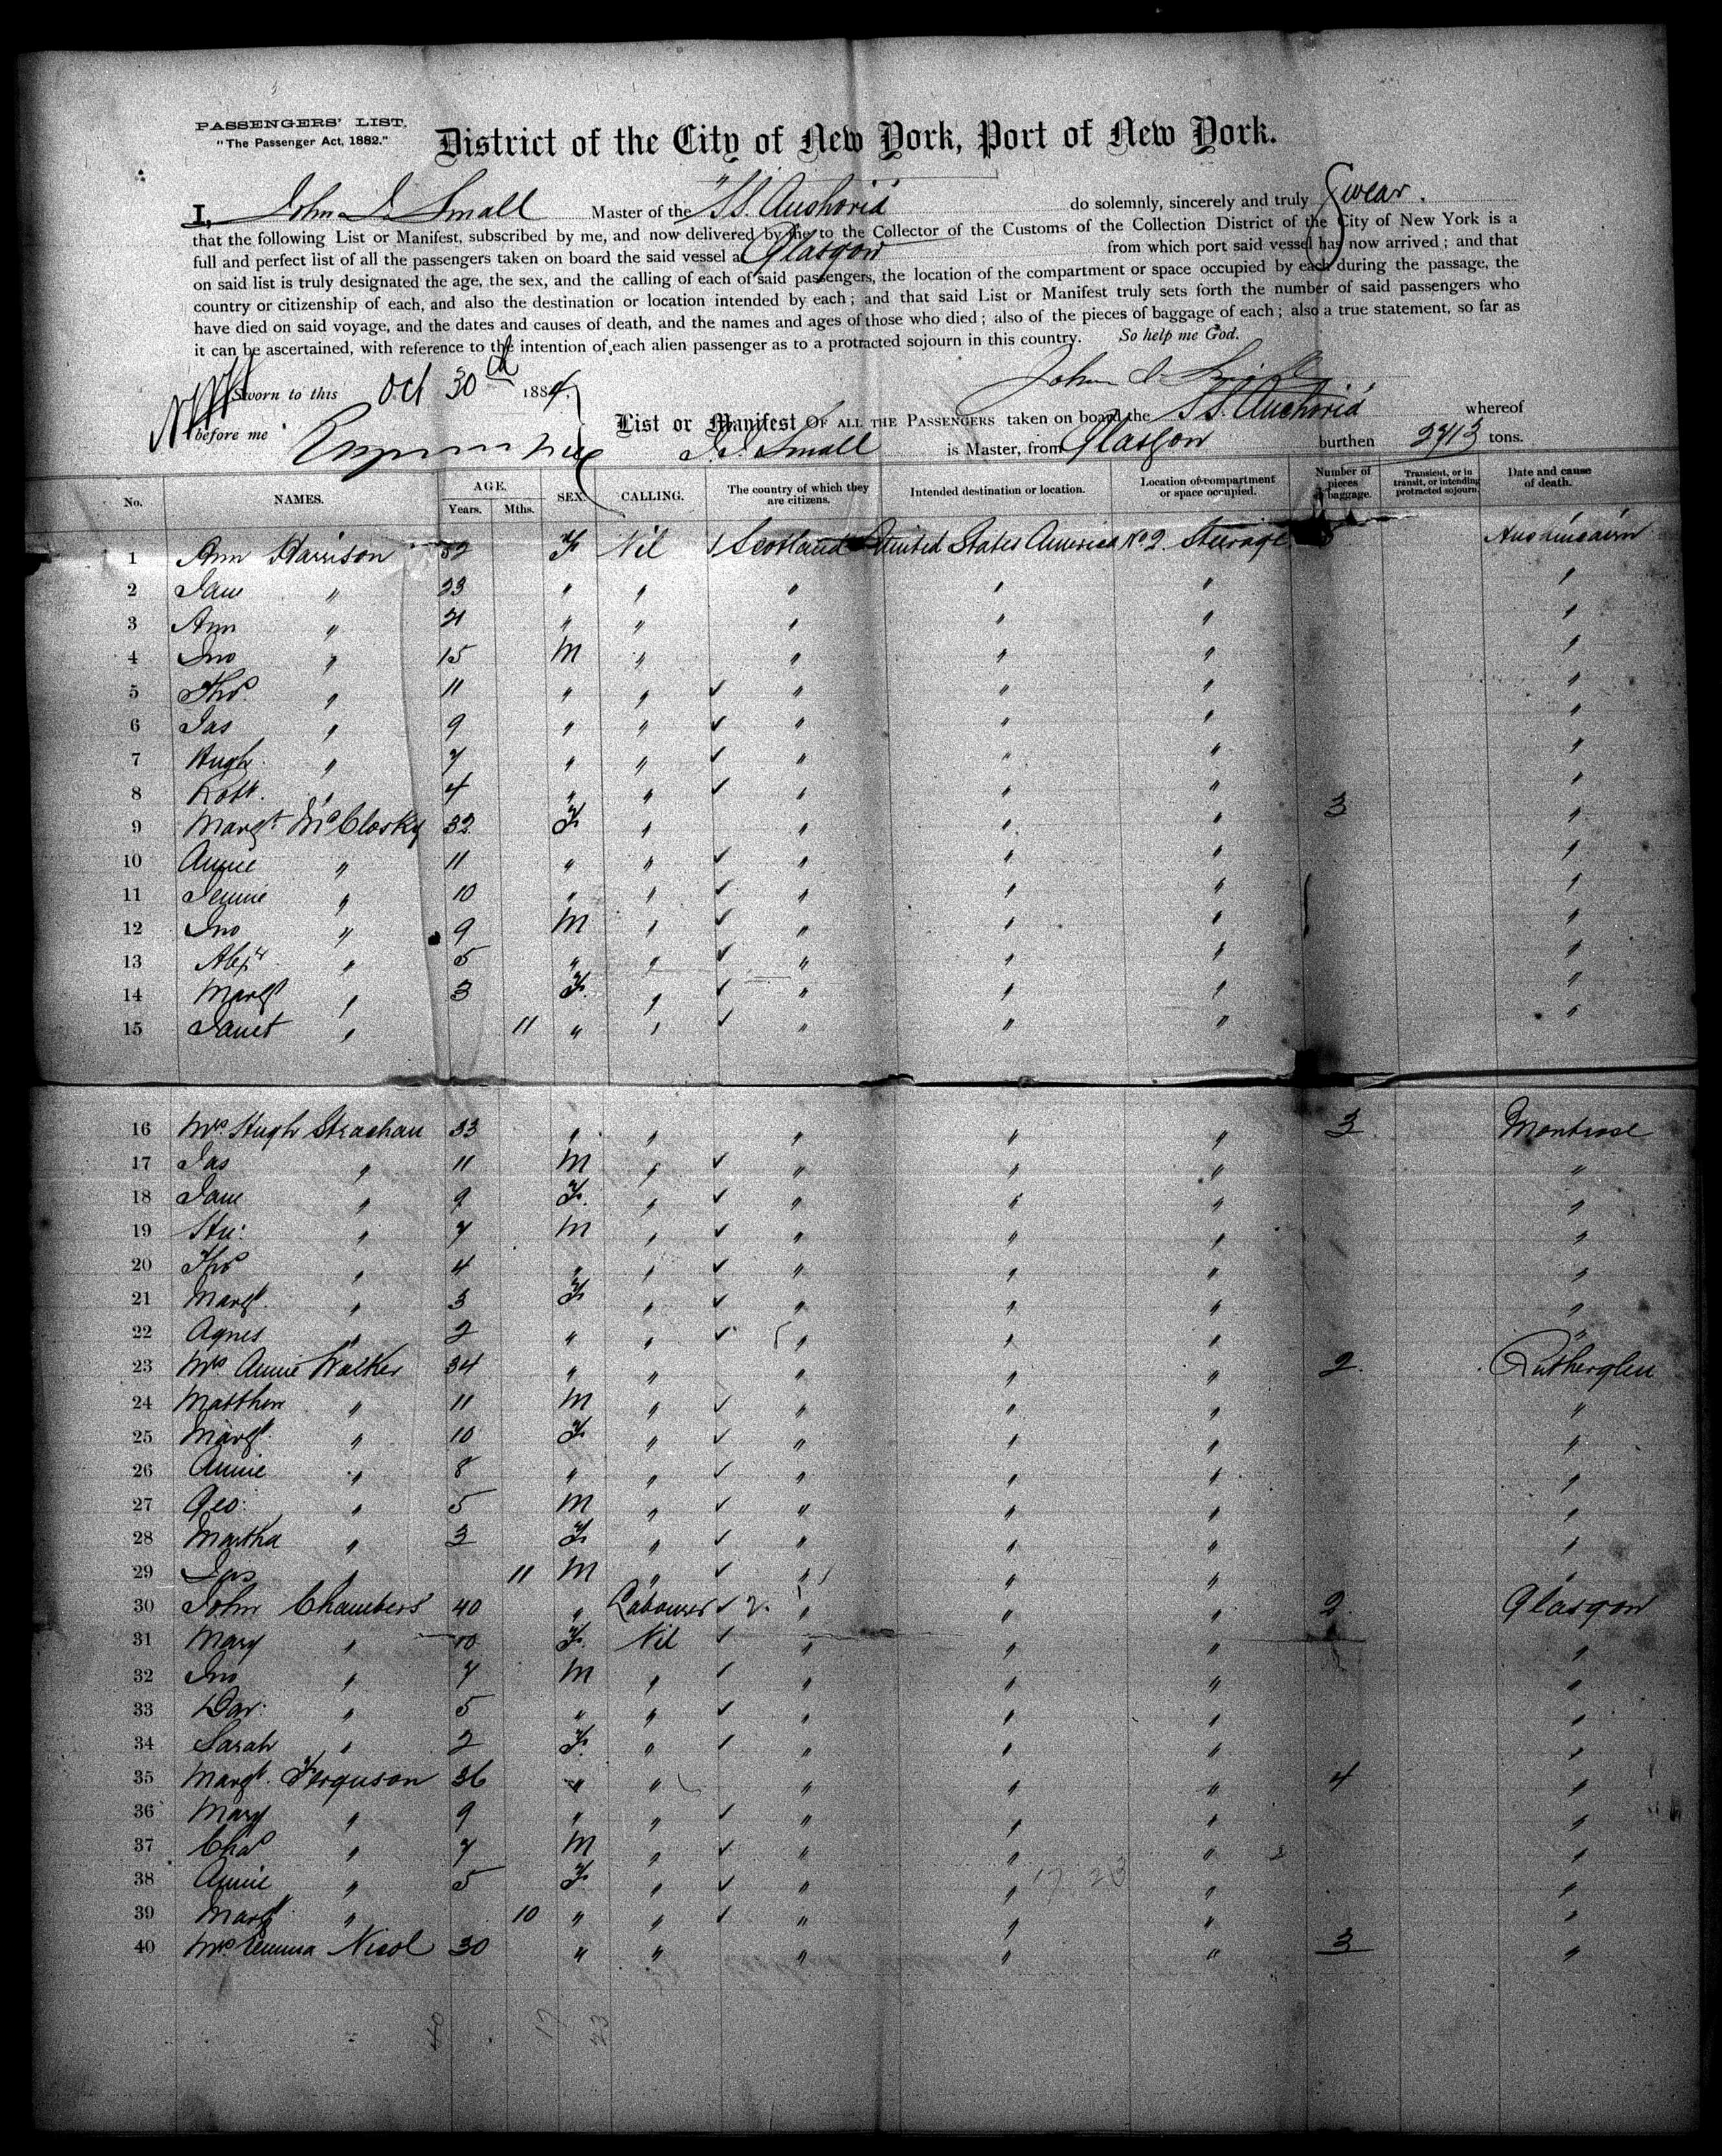 PASSENGERS' LIST.
"The Passenger Act, 1882."
District of the City of New York, Port of New York.
I, John J. Small Master of the "SS. Anchoria" do solemnly, sincerely and truly Swear.
that the following List or Manifest, subscribed by me, and now delivered by me to the Collector of the Customs of the Collection District of the City of New York is a
full and perfect list of all the passengers taken on board the said vessel at Glasgow from which port said vessel has now arrived; and that
on said list is truly designated the age, the sex, and the calling of each of said passengers, the location of the compartment or space occupied by each during the passage, the
country or citizenship of each, and also the destination or location intended by each; and that said List or Manifest truly sets forth the number of said passengers who
have died on said voyage, and the dates and causes of death, and the names and ages of those who died; also of the pieces of baggage of each; also a true statement, so far as
it can be ascertained, with reference to the intention of each alien passenger as to a protracted sojourn in this country. So help me God.
Sworn to this Oct 30th 1884. John J. Small
before me
List or Manifest OF ALL THE PASSENGERS taken on board the SS. Anchoria whereof
J. J. Small is Master, from Glasgow burthen 2713 tons.
No. NAMES. AGE. Years. Mths. SEX. CALLING. The country of which they are citizens. Intended destination or location. Location of compartment or space occupied. Number of pieces of baggage. Transient, or in transit, or intending protracted sojourn. Date and cause of death.
1 Ann Harrison 52 F Nil Scotland United States America No 2. Steerage
2 Jane " 23 " " " " " "
3 Ann " 21 " " " " " "
4 Jno " 15 M " " " " "
5 Thos. " 11 " " ✓ " " " "
6 Jas " 9 " " ✓ " " " "
7 Hugh " 7 " " ✓ " " " "
8 Robt. " 4 " " ✓ " " " "
9 Margt McClosky 32 F " " " " 3 "
10 Annie " 11 " " ✓ " " " "
11 Jennie " 10 " " ✓ " " " "
12 Jno " 9 M " ✓ " " " "
13 Alexr " 5 " " ✓ " " " "
14 Margt " 3 F. " ✓ " " " "
15 Janet " 11 " " ✓ " " " "
16 Mrs Hugh Strachan 33 " " " " " 3 Montrose
17 Jas " 11 M " ✓ " " " "
18 Jane " 9 F. " ✓ " " " "
19 Stu: " 7 M " ✓ " " " "
20 Thos " 4 " " ✓ " " " "
21 Margt. " 3 F " ✓ " " " "
22 Agnes " 2 " " ✓ " " " "
23 Mrs. Annie Walker 34 " " " " " 2. Rutherglen
24 Matthew " 11 M " ✓ " " " "
25 Margt. " 10 F " ✓ " " " "
26 Annie " 8 " " ✓ " " " "
27 Geo: " 5 M " ✓ " " " "
28 Martha " 3 F " ✓ " " " "
29 Jas " 11 M " ✓ " " " "
30 John Chambers 40 " Labourer ✓ " " " 2. Glasgow
31 Mary " 10 F. Nil ✓ " " " "
32 Jno " 7 M " ✓ " " " "
33 Dav: " 5 " " ✓ " " " "
34 Sarah " 2 F. " ✓ " " " "
35 Margt. Ferguson 36 " " " " " 4 "
36 Mary " 9 " " ✓ " " " "
37 Chas " 7 M " ✓ " " " "
38 Annie " 5 F " ✓ " " " "
39 Margt " 10 " " ✓ " " " "
40 Mrs. Emma Nicol 30 " " " " " 3 "
17 23
40 17 23